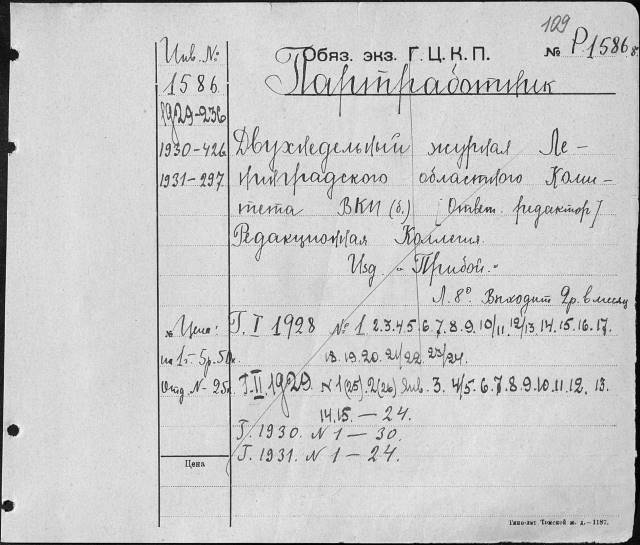 129
Инв. №
Обяз. экз. Г. Ц. К. П.
№ Р1586
1586.
Партработник
1929-236
1930-426
1931-297
Двухнедельный журнал Ле-
нинградского областного Коми-
тета ВКП (б.) [Ответ. редактор]
Редакционная Коллегия.
Изд. „Прибой.“
Л. 8° Выходит 2 р. в месяц
№ Цена:
Г. I 1928 № 1 2.3.4.5.6.7.8.9.10/11.12/13 14.15.16.17.
на 1 г. 5 р. 50 к.
18.19.20.21/22.23/24.
Отд. № 25к.
Г. II. 1929. N 1(25).2(26) Янв. 3. 4/5.6.7.8.9.10.11.12. 13.
14.15. — 24.
Г. 1930. N 1 — 30.
Г. 1931. N 1 — 24.
Цена
Типо-лит Томской ж. д.—1187.